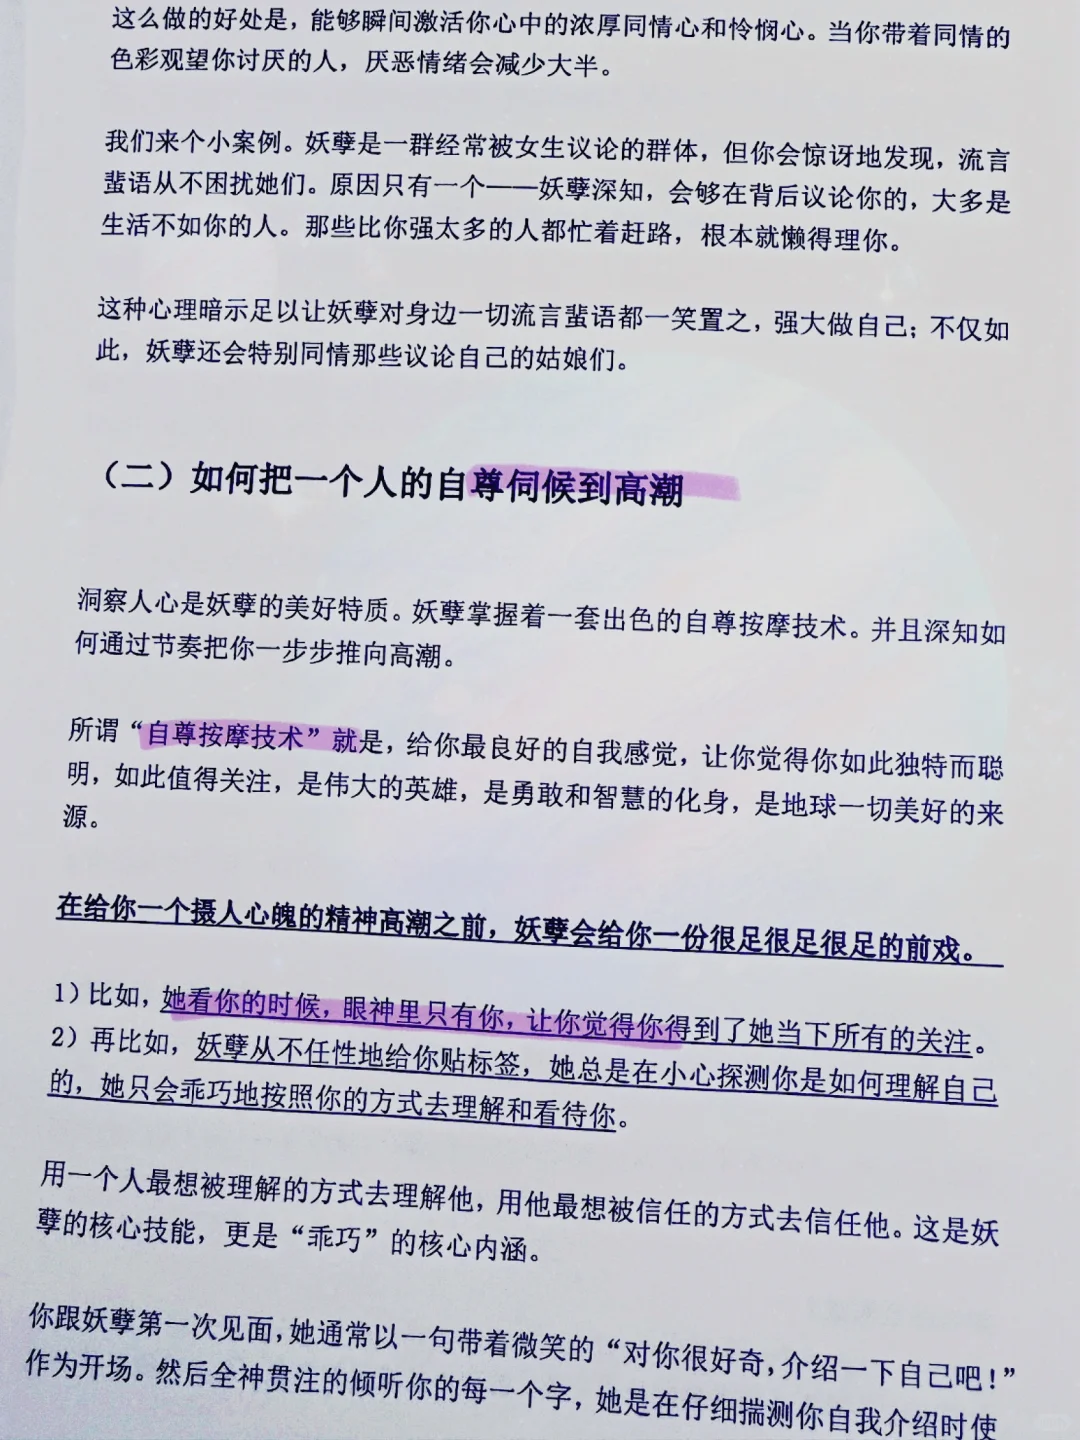 这么做的好处是，能够瞬间激活你心中的浓厚同情心和怜悯心。当你带着同情的
色彩观望你讨厌的人，厌恶情绪会减少大半。
我们来个小案例。妖孽是一群经常被女生议论的群体，但你会惊讶地发现，流言
蜚语从不困扰她们。原因只有一个——妖孽深知，会够在背后议论你的，大多是
生活不如你的人。那些比你强太多的人都忙着赶路，根本就懒得理你。
这种心理暗示足以让妖孽对身边一切流言蜚语都一笑置之，强大做自己；不仅如
此，妖孽还会特别同情那些议论自己的姑娘们。
（二）如何把一个人的自尊伺候到高潮
洞察人心是妖孽的美好特质。妖孽掌握着一套出色的自尊按摩技术。并且深知如
何通过节奏把你一步步推向高潮。
所谓“自尊按摩技术”就是，给你最良好的自我感觉，让你觉得你如此独特而聪
明，如此值得关注，是伟大的英雄，是勇敢和智慧的化身，是地球一切美好的来
源。
在给你一个摄人心魄的精神高潮之前，妖孽会给你一份很足很足很足的前戏。
1）比如，她看你的时候，眼神里只有你，让你觉得你得到了她当下所有的关注。
2）再比如，妖孽从不任性地给你贴标签，她总是在小心探测你是如何理解自己
的，她只会乖巧地按照你的方式去理解和看待你。
用一个人最想被理解的方式去理解他，用他最想被信任的方式去信任他。这是妖
孽的核心技能，更是“乖巧”的核心内涵。
你跟妖孽第一次见面，她通常以一句带着微笑的“对你很好奇，介绍一下自己吧！”
作为开场。然后全神贯注的倾听你的每一个字，她是在仔细揣测你自我介绍时使